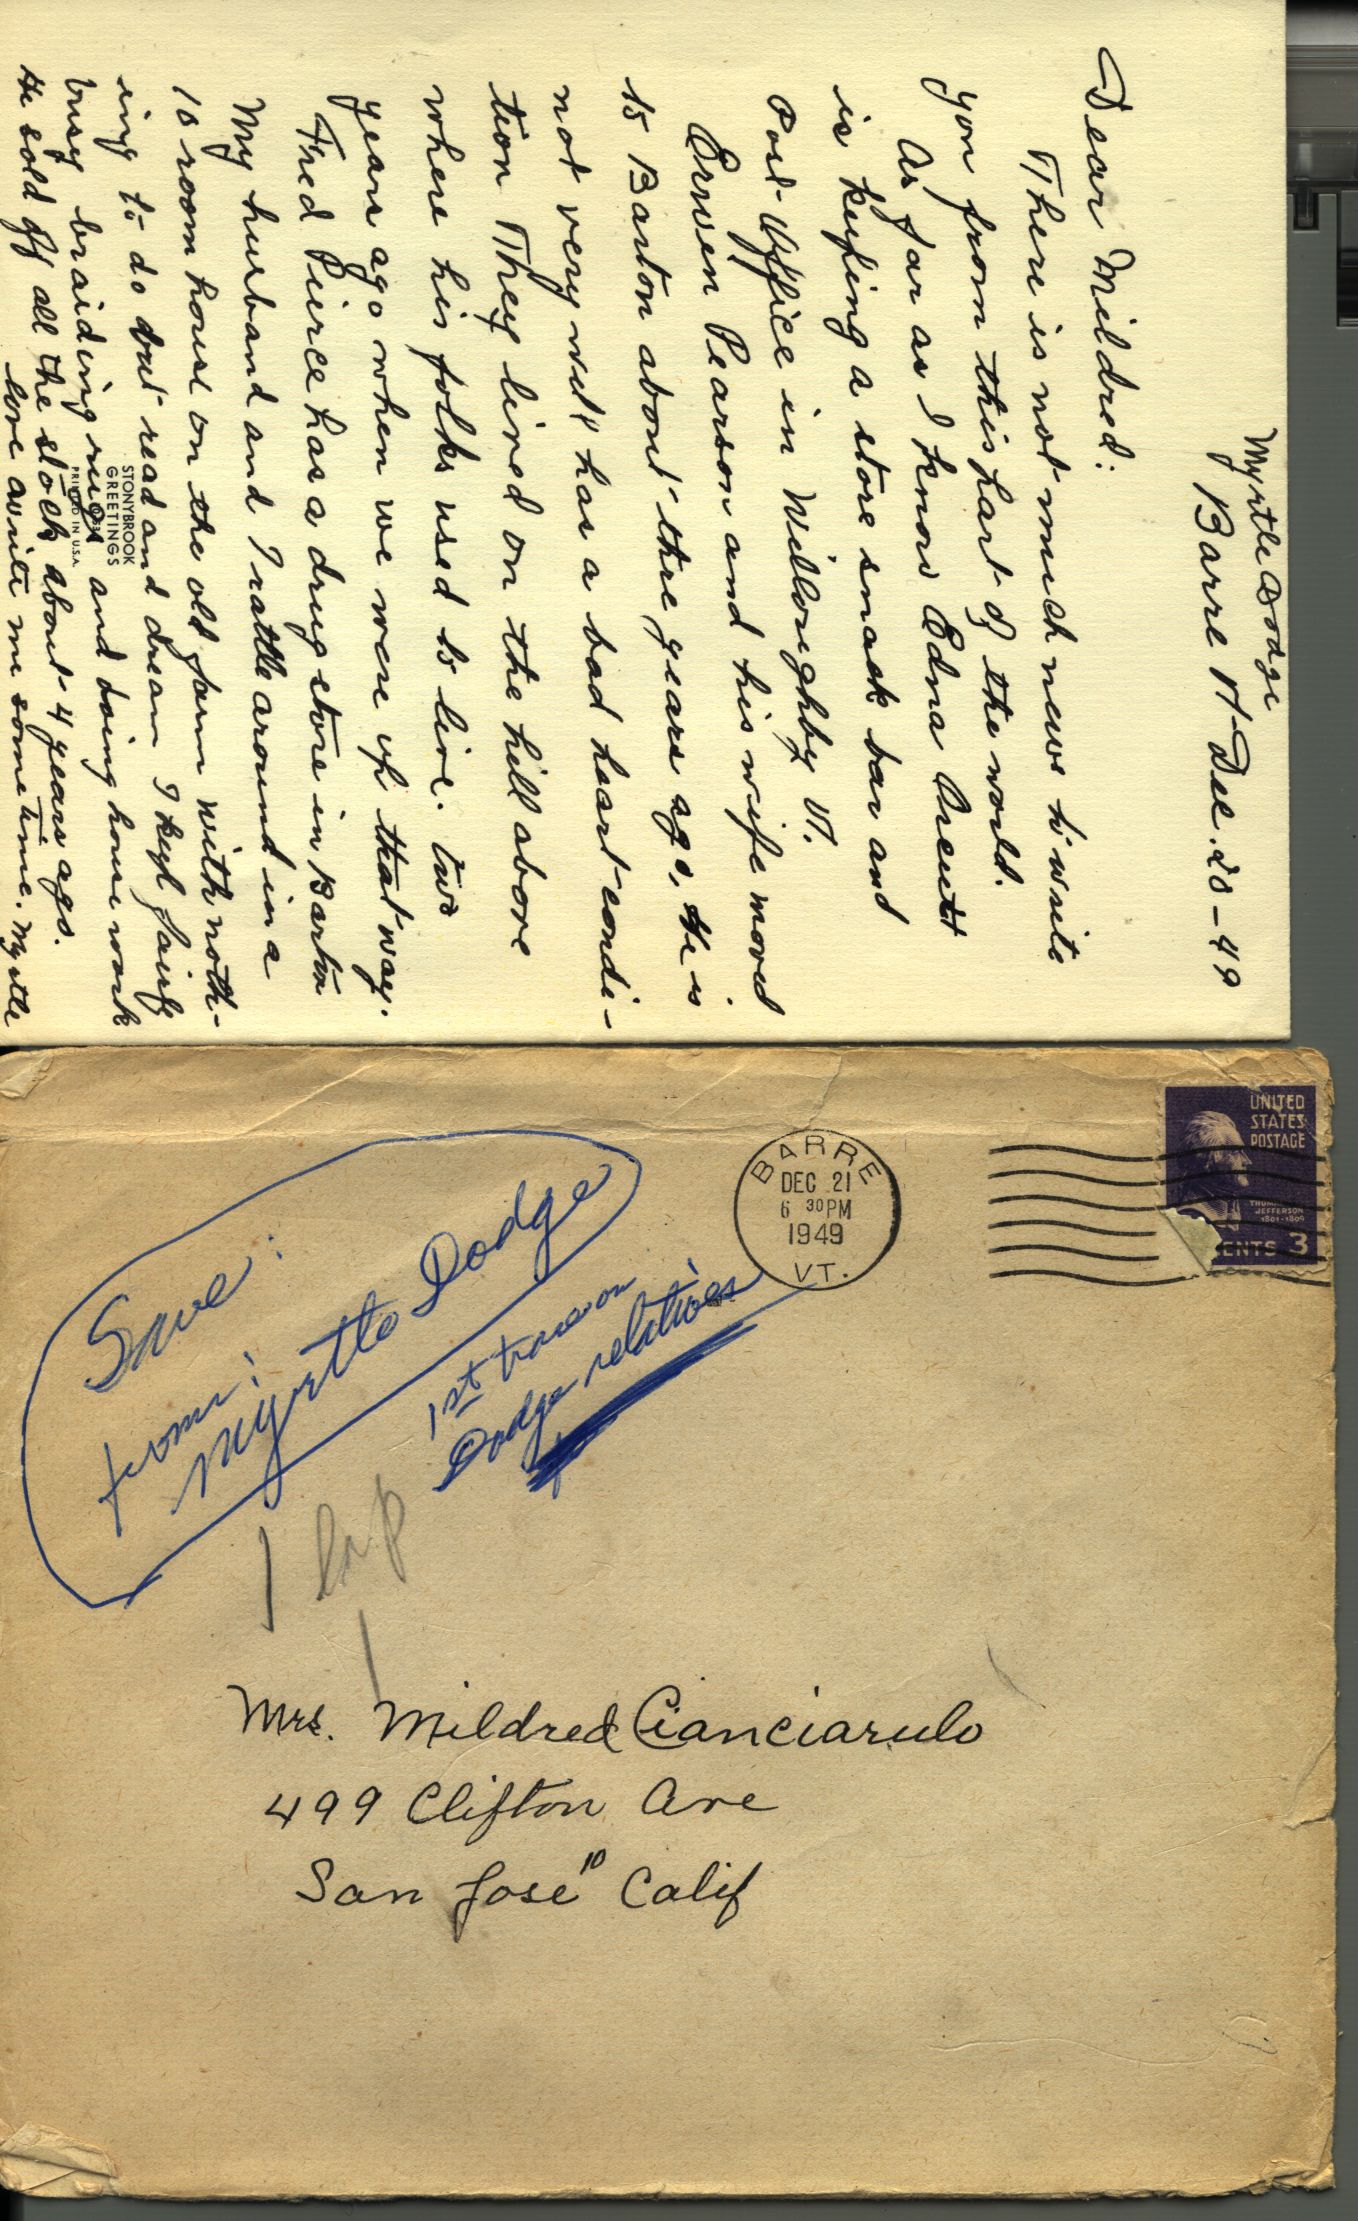 Myrtle Dodge
Barre Vt Dec. 20 - 49
Dear Mildred:
There is not much news to write
you from this part of the world.
As far as I know Edna
is keeping a store snack bar and
Post Office in Willoughby Vt.
Erwin Pearson and his wife moved
to Barton about thre years ago, He is
not very well has a bad heart condi-
tion They lived on the hill above
where his folks used to live. two
years ago when we were up that way.
Fred Pierce has a drug store in Barton
My husband and I rattle around in a
10 room house on the old farm with noth-
ing to do but read and dream I keep fairly
busy braiding rugs and doing house work
He sold off all the stock about 4 years ago.
Love write me some time. Myrtle
STONYBROOK
GREETINGS
PRINTED IN U.S.A.
UNITED
STATES
POSTAGE
THOMAS
JEFFERSON
1801-1809
CENTS 3
BARRE
DEC 21
6 30 PM
1949
VT.
Save:
from:
Myrtle Dodge
1st trace on
Dodge relatives
Mrs. Mildred Cianciarulo
499 Clifton Ave
San Jose 10 Calif